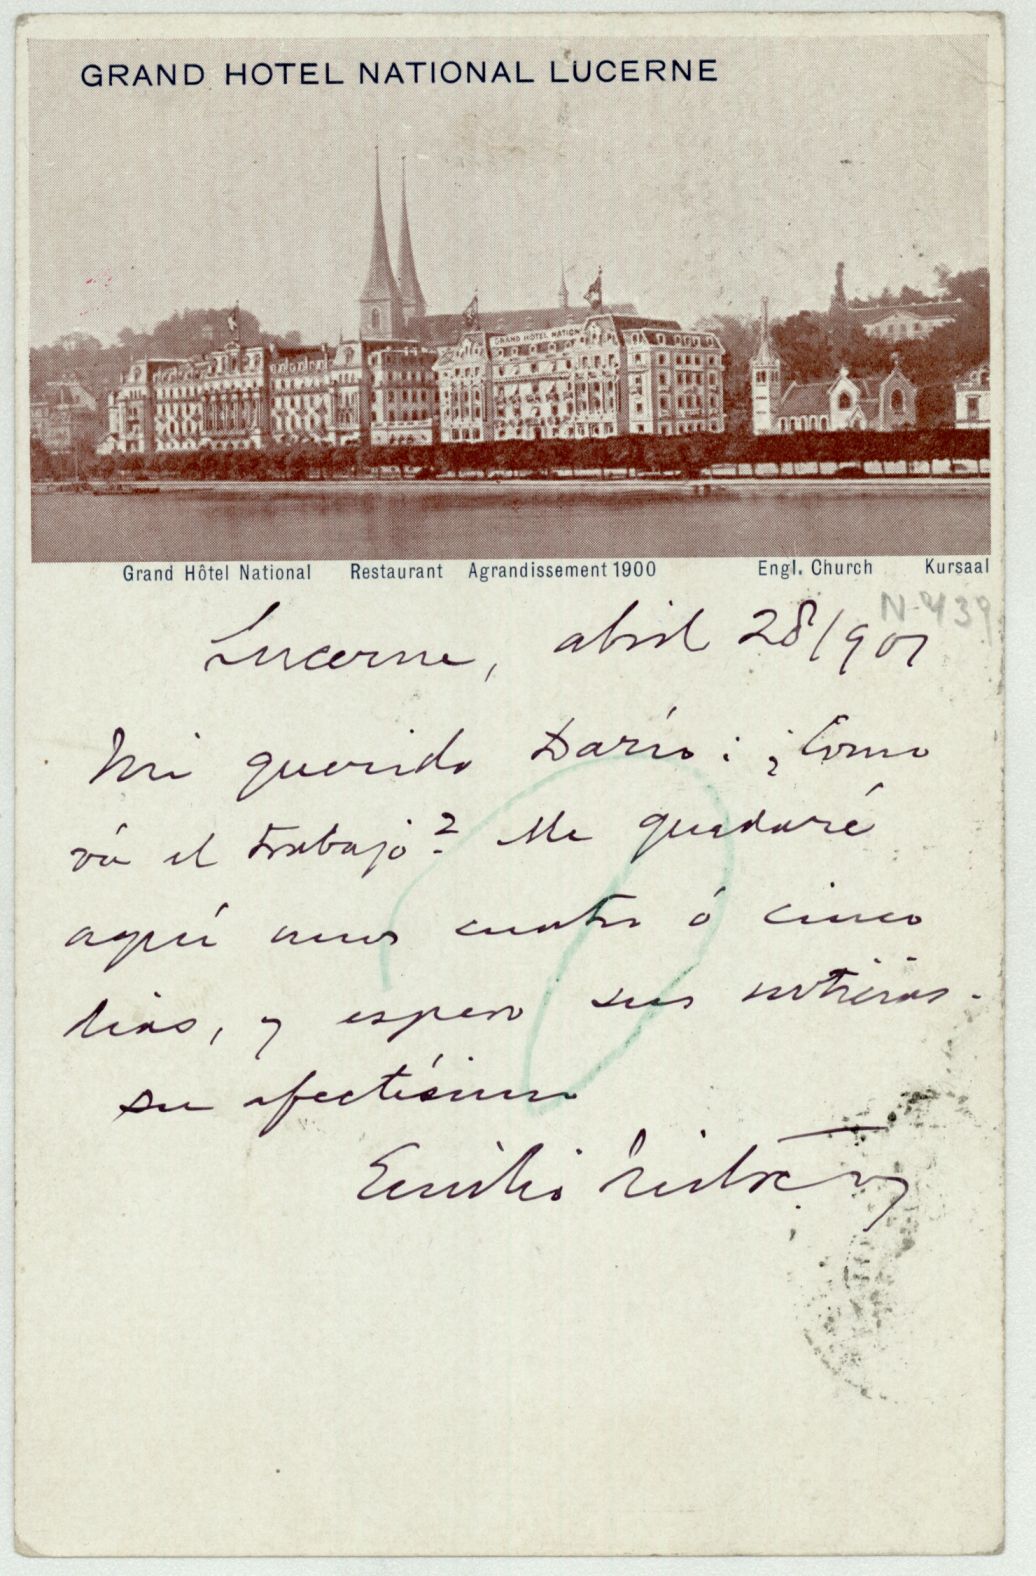 GRAND HOTEL NATIONAL LUCERNE
GRAND HOTEL NATION
Grand Hôtel National Restaurant Agrandissement 1900 Engl. Church Kursaal
N-439
Lucerne, abril 28/901
Mi querido Darío: ¿Como
vá el trabajo? Me quedaré
aquí unos cuatro ó cinco
dias, y espero sus noticias.
su afectísimo
Emilio